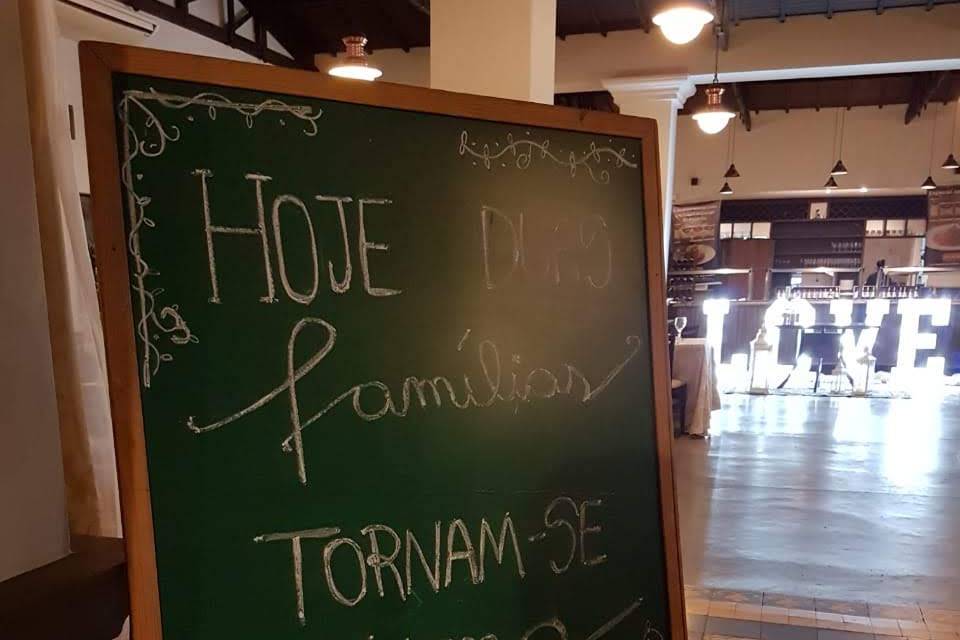 HOJE DUAS
famílias
TORNAM-SE
LOVE